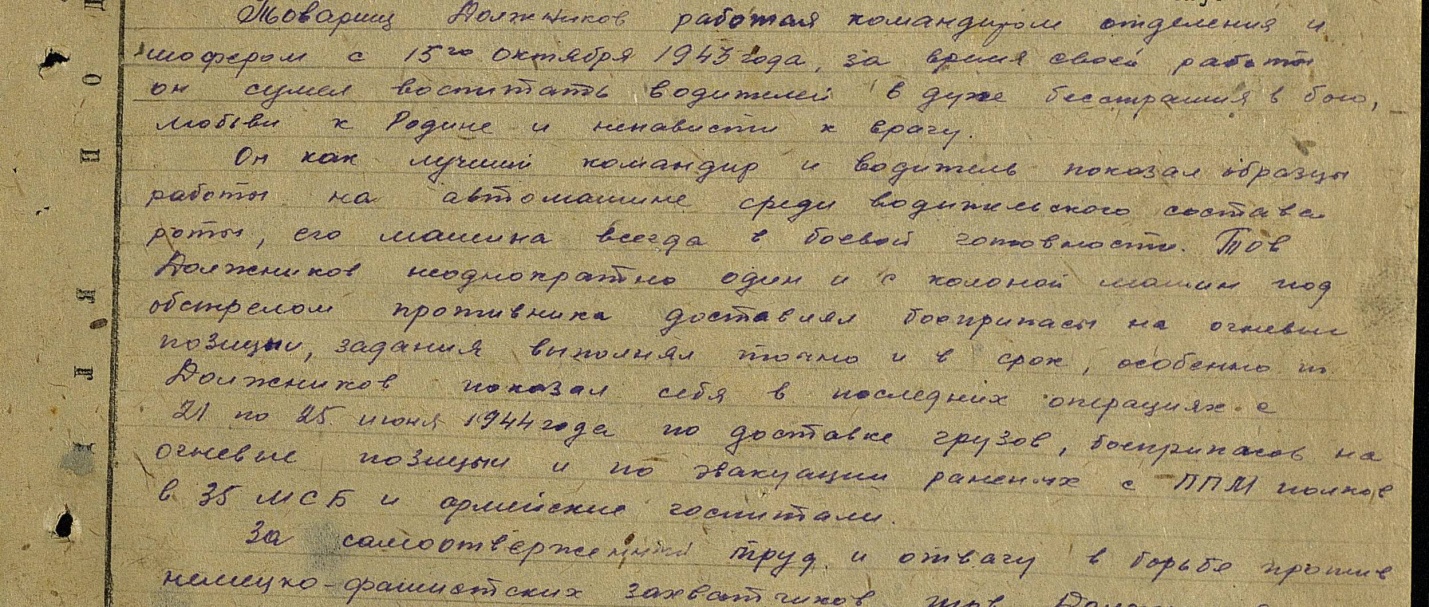 Товарищ Должников работая командиром отделения и
шофером с 15го октября 1943 года, за время своей работы
он сумел воспитать водителей в духе бесстрашия в бою,
любви к Родине и ненависти к врагу.
Он как лучший командир и водитель показал образцы
работы на автомашине среди водительского состава
роты, его машина всегда в боевой готовности. Тов
Должников неоднократно один и с колоной машин под
обстрелом противника доставлял боеприпасы на огневые
позиции, задания выполнял точно и в срок, особенно т.
Должников показал себя в последних операциях с
21 по 25 июня 1944 года по доставке грузов, боеприпасов на
огневые позиции и по эвакуации раненых с ППМ полков
в 35 МСБ и армейские госпитали.
За самоотверженный труд и отвагу в борьбе против
немецко-фашистских захватчиков тов